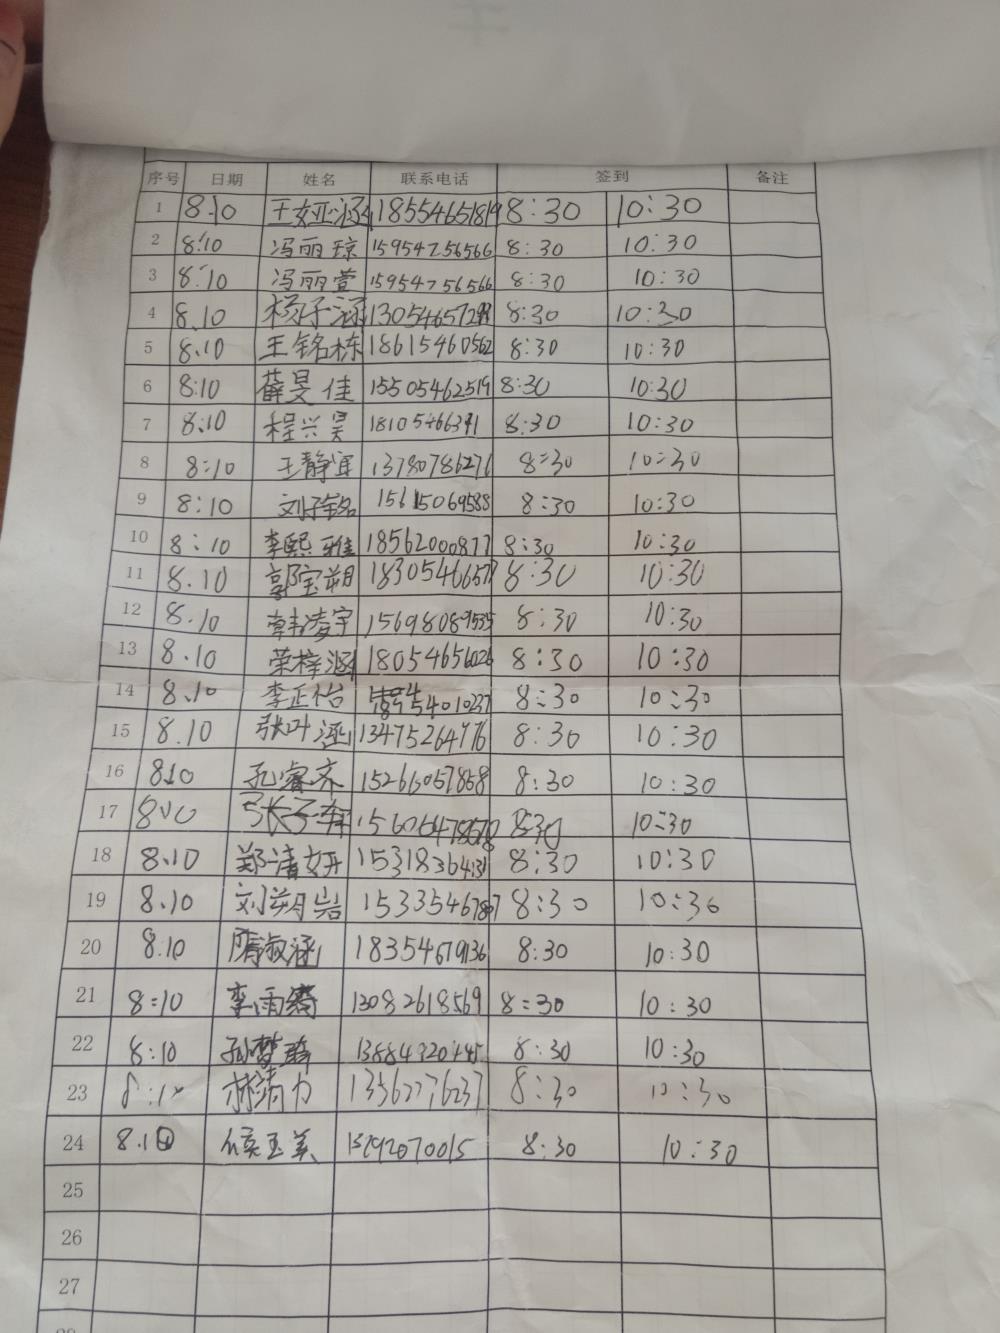 序号 日期 姓名 联系电话 签到 备注
1 8.10 王娅涵 18554651819 8:30 10:30
2 8:10 冯丽琼 15954756566 8:30 10:30
3 8:10 冯丽萱 15954756566 8:30 10:30
4 8.10 杨子涵 8:30 10:30
5 8.10 王铭栋 18615460562 8:30 10:30
6 8:10 薛旻佳 15505462519 8:30 10:30
7 8:10 程兴昊 8:30 10:30
8 8:10 王静宜 13780786276 8:30 10:30
9 8:10 刘子铭 15615069588 8:30 10:30
10 8:10 李熙雅 18562000877 8:30 10:30
11 8.10 郭宝朔 18305466577 8:30 10:30
12 8.10 韩凌宇 15698089535 8:30 10:30
13 8.10 荣梓涵 18054656026 8:30 10:30
14 8.10 李正怡 8:30 10:30
15 8.10 张叶涵 13475264776 8:30 10:30
16 8.10 孔睿齐 15266057858 8:30 10:30
17 8.10 张子 8:30 10:30
18 8.10 郑清妍 8:30 10:30
19 8.10 刘朔岩 15335467807 8:30 10:30
20 8.10 隋淑涵 18354679136 8:30 10:30
21 8:10 李雨 13082618569 8:30 10:30
22 8:10 孙梦 13884320445 8:30 10:30
23 林清力 13562276237 8:30 10:30
24 8.10 侯玉美 8:30 10:30
25
26
27